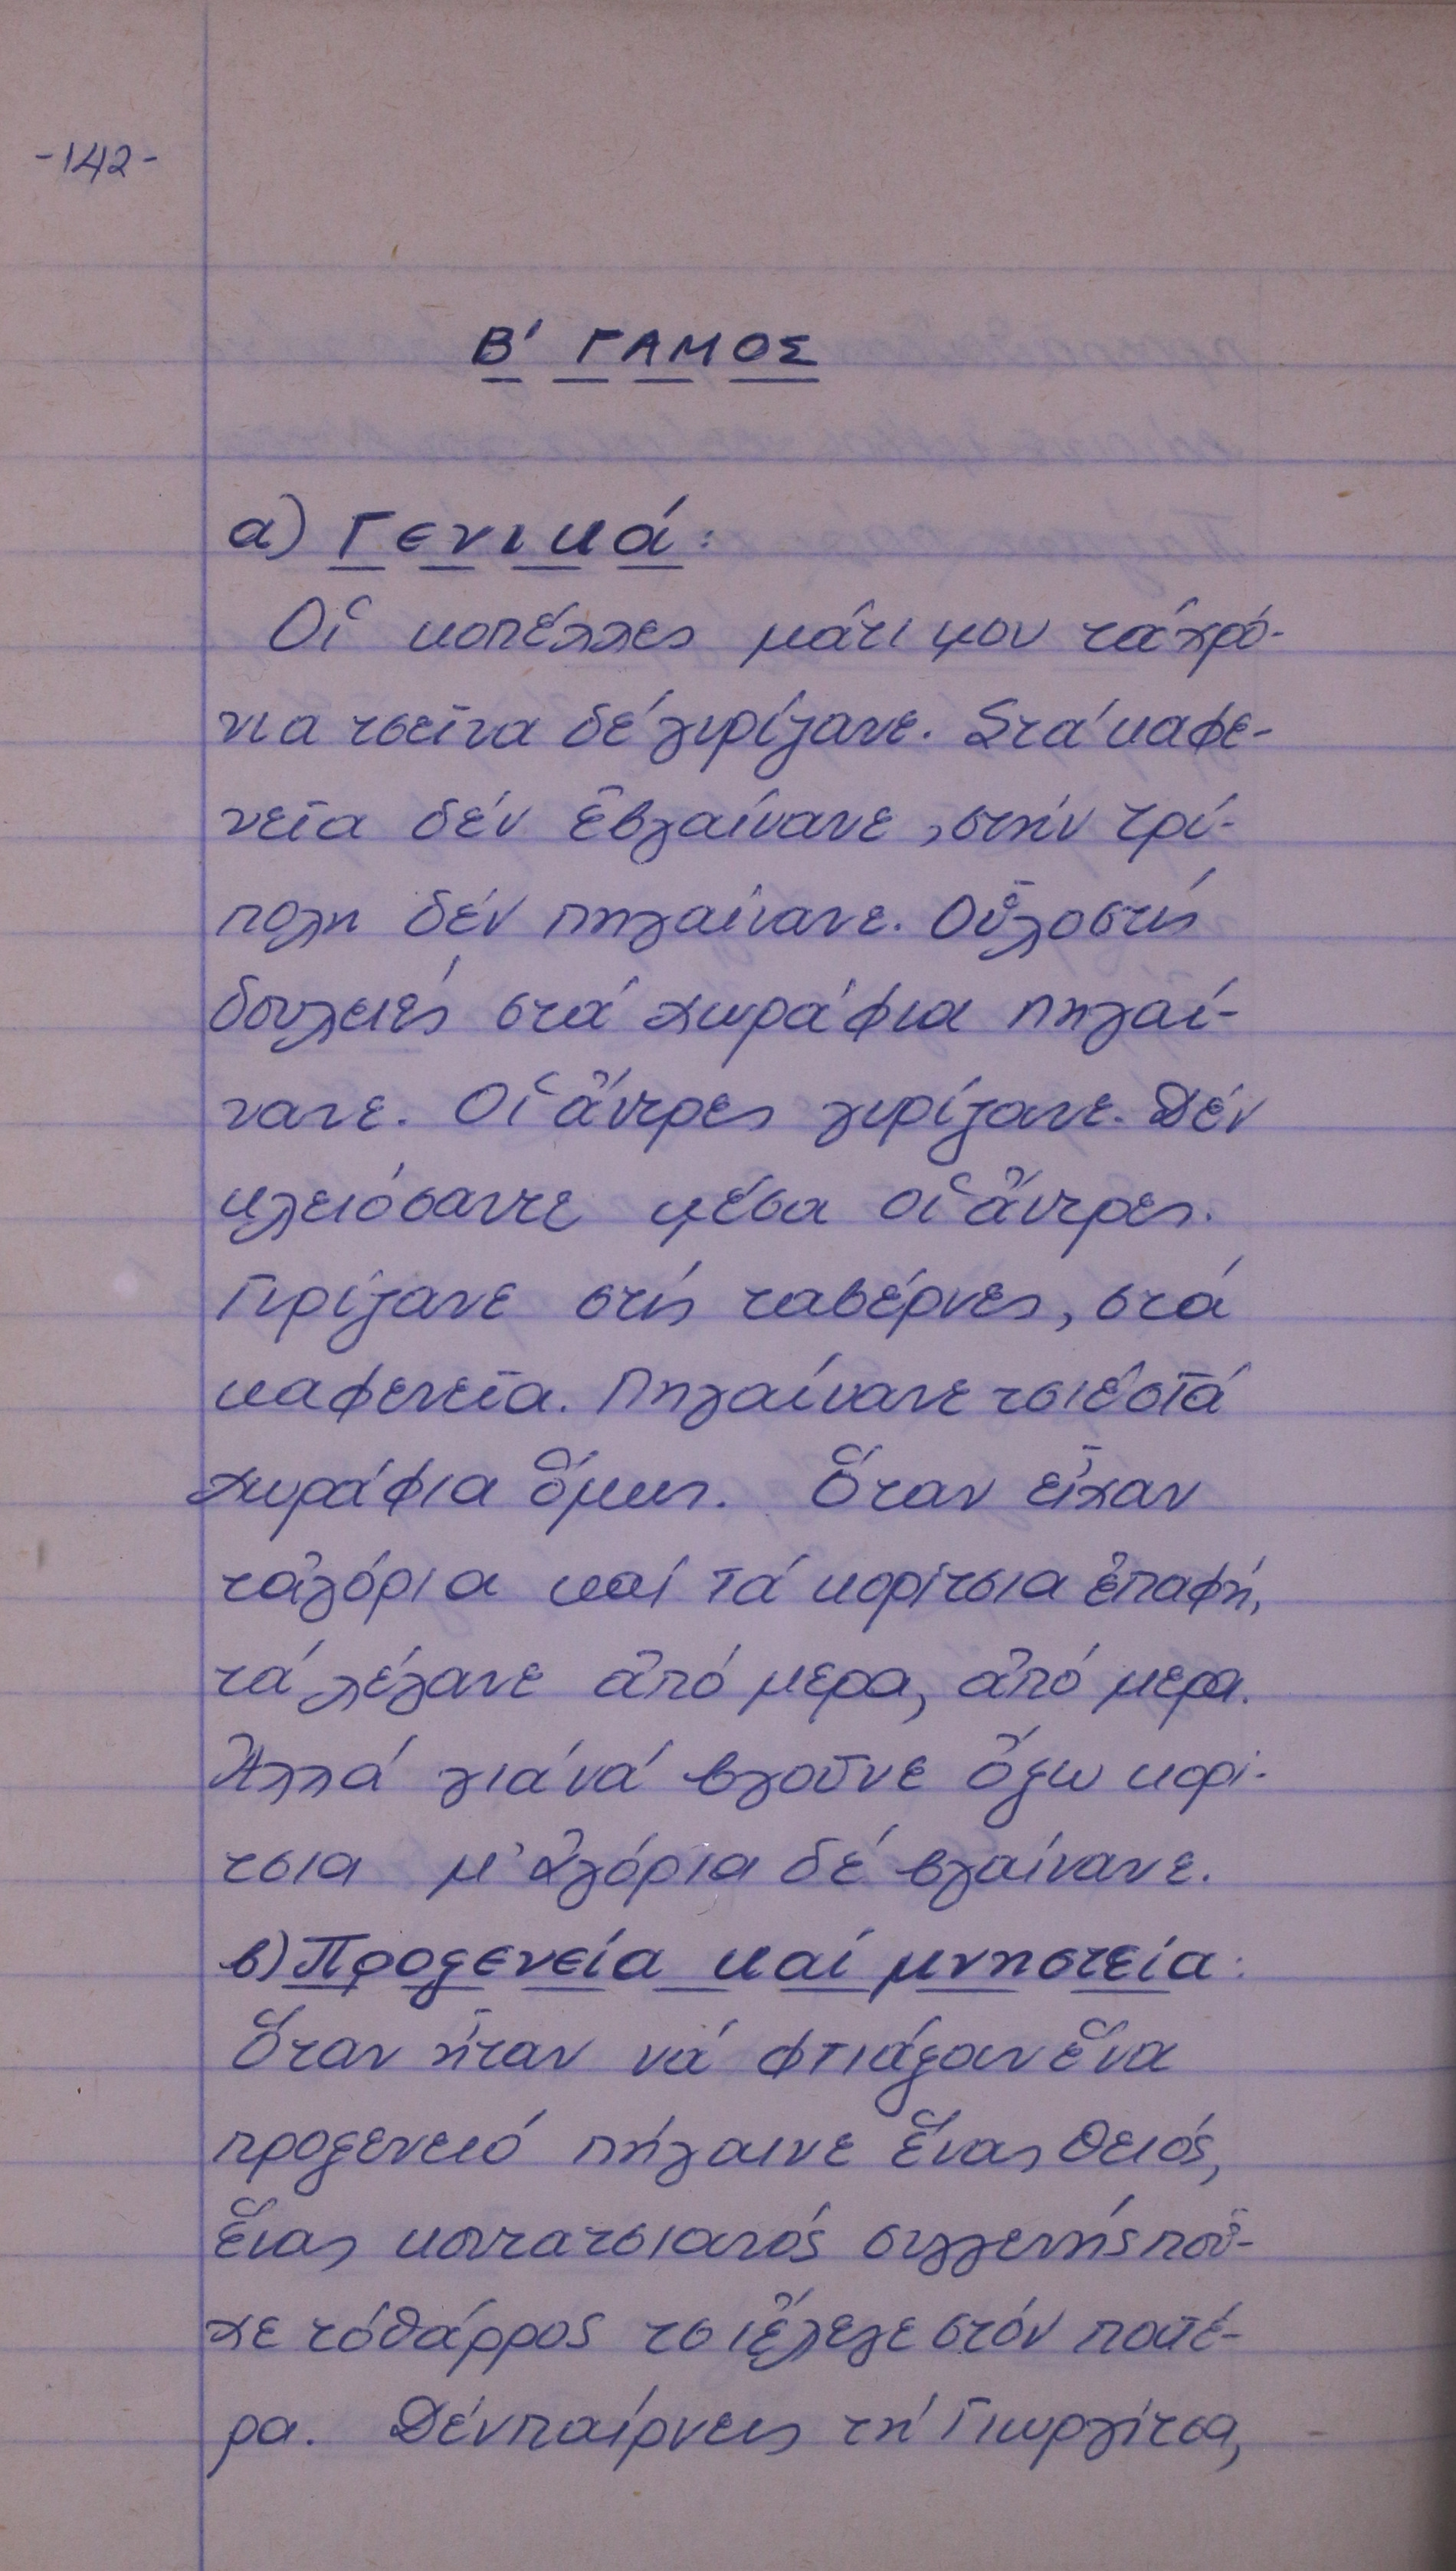 -142-
Β' ΓΑΜΟΣ
α) Γενικά:
Οἱ κοπέλλες μάτι μου τά χρό-
νια τσεῖνα δέ γυρίζανε. Στά καφε-
νεῖα δέν ἐβγαίνανε, στήν Τρί-
πολη δέν πηγαίνανε. Οὖλο στίς
δουλειές στά χωράφια πηγαί-
νανε. Οἱ ἄντρες γυρίζανε. Δέν
κλειόσαντε μέσα οἱ ἄντρες.
Γυρίζανε στίς ταβέρνες, στά
καφενεῖα. Πηγαίνανε τσιέ στά
χωράφια ὅμως. Ὅταν εἶχαν
τἀγόρια καί τά κορίτσια ἐπαφή,
τά λέγανε ἀπό μερα, ἀπό μερα.
Ἀλλά γιά νά βγοῦνε ὄξω κορί-
τσια μ' ἀγόρια δέ βγαίνανε.
β) Προξενεία καί μνηστεία:
Ὅταν ἦταν νά φτιάξουν ἕνα
προξενειό πήγαινε ἕνας θειός,
ἕνας κοντατσιανός συγγενής ποὖ-
χε τό θάρρος τσι ἔλεγε στόν πατέ-
ρα. Δέν παίρνεις τή Γιωργίτσα,